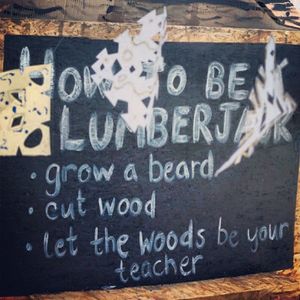 HOW TO BE
LUMBERJACK
• grow a beard
• cut wood
• let the woods be your
teacher